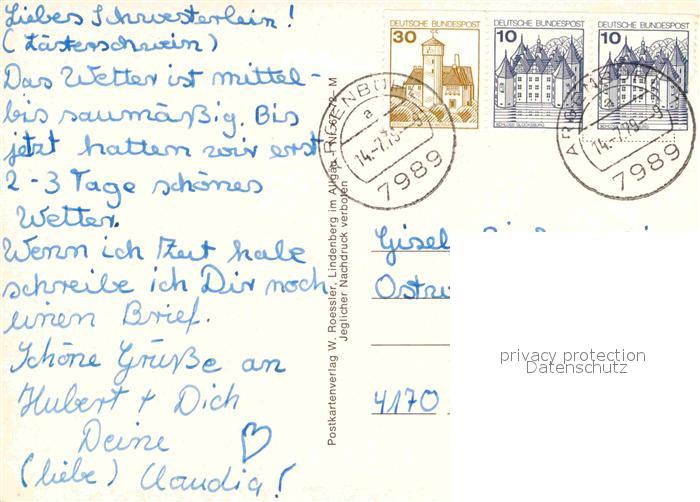 Liebes Schwesterlein!
(Lästerschwein)
Das Wetter ist mittel-
bis saumäßig. Bis
jetzt hatten wir erst
2-3 Tage schönes
Wetter.
Wenn ich Zeit habe
schreibe ich Dir noch
einen Brief.
Schöne Grüße an
Hubert + Dich
Deine
(liebe) Claudia!
Postkartenverlag W. Roessler, Lindenberg im Allgäu
Jeglicher Nachdruck verboten
DEUTSCHE BUNDESPOST
30
DEUTSCHE BUNDESPOST
10
SCHLOSS GLÜCKSBURG
DEUTSCHE BUNDESPOST
10
ARGENBÜHL
a
14.-7.79
7989
14.-7.79
7989
Gisel
4170
privacy protection
Datenschutz